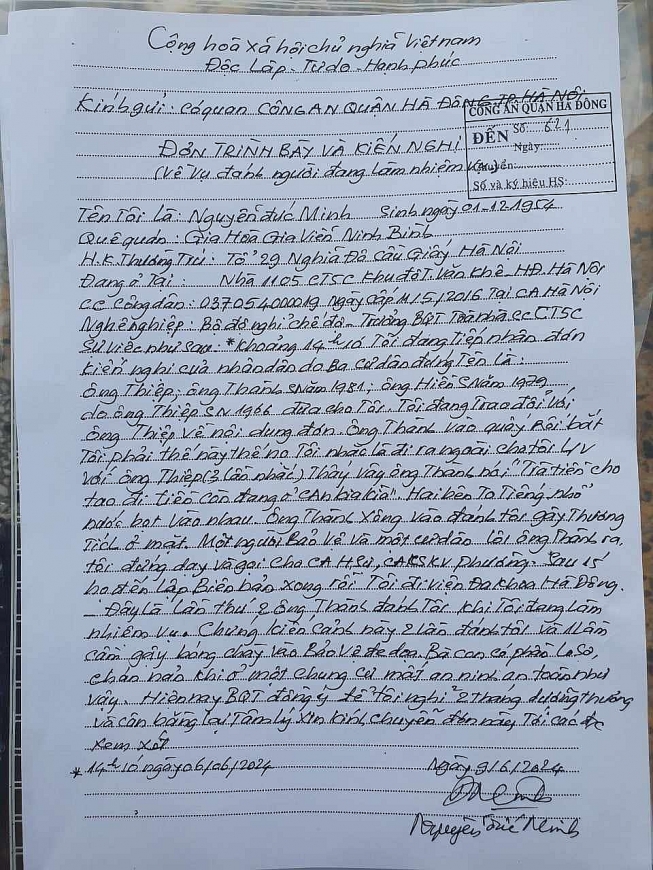 Cộng hoà xã hội chủ nghĩa Việt nam
Độc Lập - Tự do - Hạnh phúc
Kính gửi: Cơ quan CÔNG AN QUẬN HÀ ĐÔNG TP HÀ NỘI
CÔNG AN QUẬN HÀ ĐÔNG
ĐẾN
Số: 621
Ngày:
Chuyển:
Số và ký hiệu HS:
ĐƠN TRÌNH BÀY VÀ KIẾN NGHỊ
(Về vụ đánh người đang làm nhiệm vụ)
Tên Tôi là: Nguyễn đức Minh Sinh ngày 01-12-1954
Quê quán: Gia Hoà Gia Viễn Ninh Bình
H.K.Thường Trú: Tổ 29 Nghĩa Đô Cầu Giấy Hà Nội
Đang ở Tại: Nhà 1105 CT5C Khu đô T. Văn Khê - HĐ. Hà Nội
CC Công dân: 037054000019 ngày cấp 11/5/2016 Tại CA Hà Nội
Nghề nghiệp: Bộ đội nghỉ chế độ - Trưởng BQT Toà nhà CC CT5C
Sự việc như sau: *Khoảng 14h10 Tôi đang Tiếp nhận đơn
kiến nghị của nhân dân do Ba cư dân đứng Tên là:
Ông Thiệp; ông Thanh SNăm 1981; ông Hiên SNăm 1979
do ông Thiệp SN 1966 đưa cho Tôi. Tôi đang Trao đổi với
ông Thiệp về nội dung đơn Ông Thanh vào quấy Rối bắt
Tôi phải thế này thế nọ Tôi nhắc là đi ra ngoài cho tôi L/V
với ông Thiệp (3 lần nhắc) Thấy vậy ông Thành nói "Trả tiền cho
tao đi tiền còn đang ở CAn kia kìa". Hai bên To Tiếng nhổ
nước bọt vào nhau. Ông Thành Xông vào đánh tôi gây Thương
Tích ở mặt. Một người Bảo vệ và một cư dân lôi ông Thanh ra,
tôi đứng dậy và gọi cho CA HSự, CAKSKV phường. Sau 15'
họ đến lập Biên bản xong rồi Tôi đi viện Đa Khoa Hà Đông.
- Đây là lần thứ 2 ông Thành đánh Tôi khi Tôi đang làm
nhiệm vụ. Chứng kiến cảnh này 2 lần đánh tôi và 1 lần
cầm gậy bóng chày vào Bảo vệ đe doạ. Bà con có phần Lo Sợ,
chán nản khi ở một chung cư mất an ninh an toàn như
vậy. Hiện nay BQT đồng ý để Tôi nghỉ 2 tháng dưỡng thương
và cân bằng lại Tâm lý Xin kính chuyển đơn này Tới các đ/c
Xem xét
* 14h10 ngày 06/06/2024
Ngày 9/6/2024
Nguyễn Đức Minh